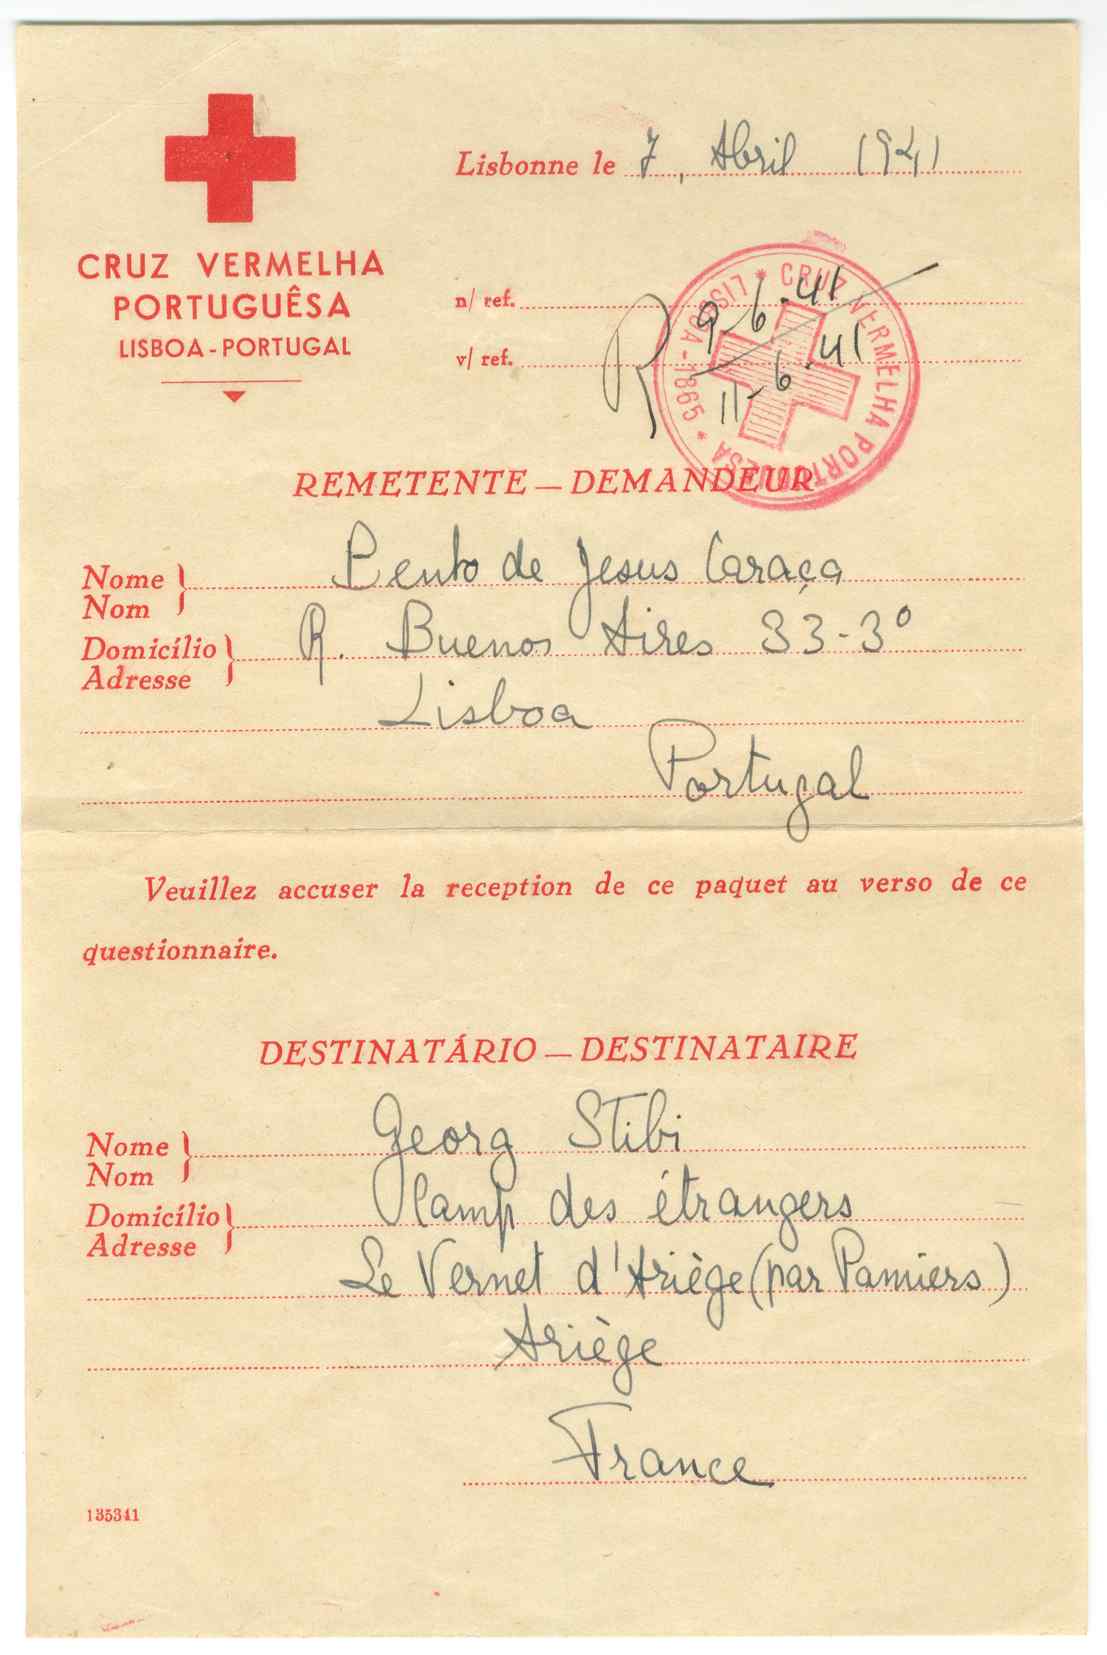 CRUZ VERMELHA
PORTUGUÊSA
LISBOA-PORTUGAL
Lisbonne le 7, Abril 1941
n/ ref.
v/ ref.
R 9-6-41
11-6-41
LISBOA-1865 * CRUZ VERMELHA PORTUGUESA *
REMETENTE — DEMANDEUR
Nome
Nom
Bento de Jesus Caraça
Domicílio
Adresse
R. Buenos Aires 33-3º
Lisboa
Portugal
Veuillez accuser la reception de ce paquet au verso de ce
questionnaire.
DESTINATÁRIO — DESTINATAIRE
Nome
Nom
Georg Stibi
Domicílio
Adresse
Camp des étrangers
Le Vernet d'Ariège (par Pamiers)
Ariège
France
135341